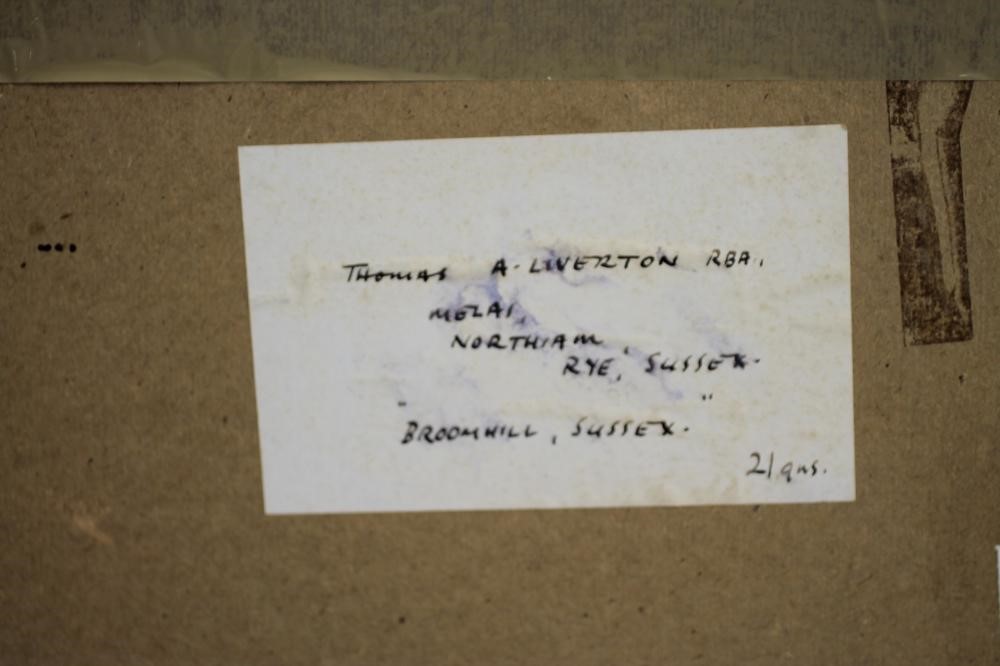 THOMAS A. LIVERTON RBA.
MELAI,
NORTHIAM,
RYE, SUSSEX.
" "
BROOMHILL, SUSSEX.
21 gns.